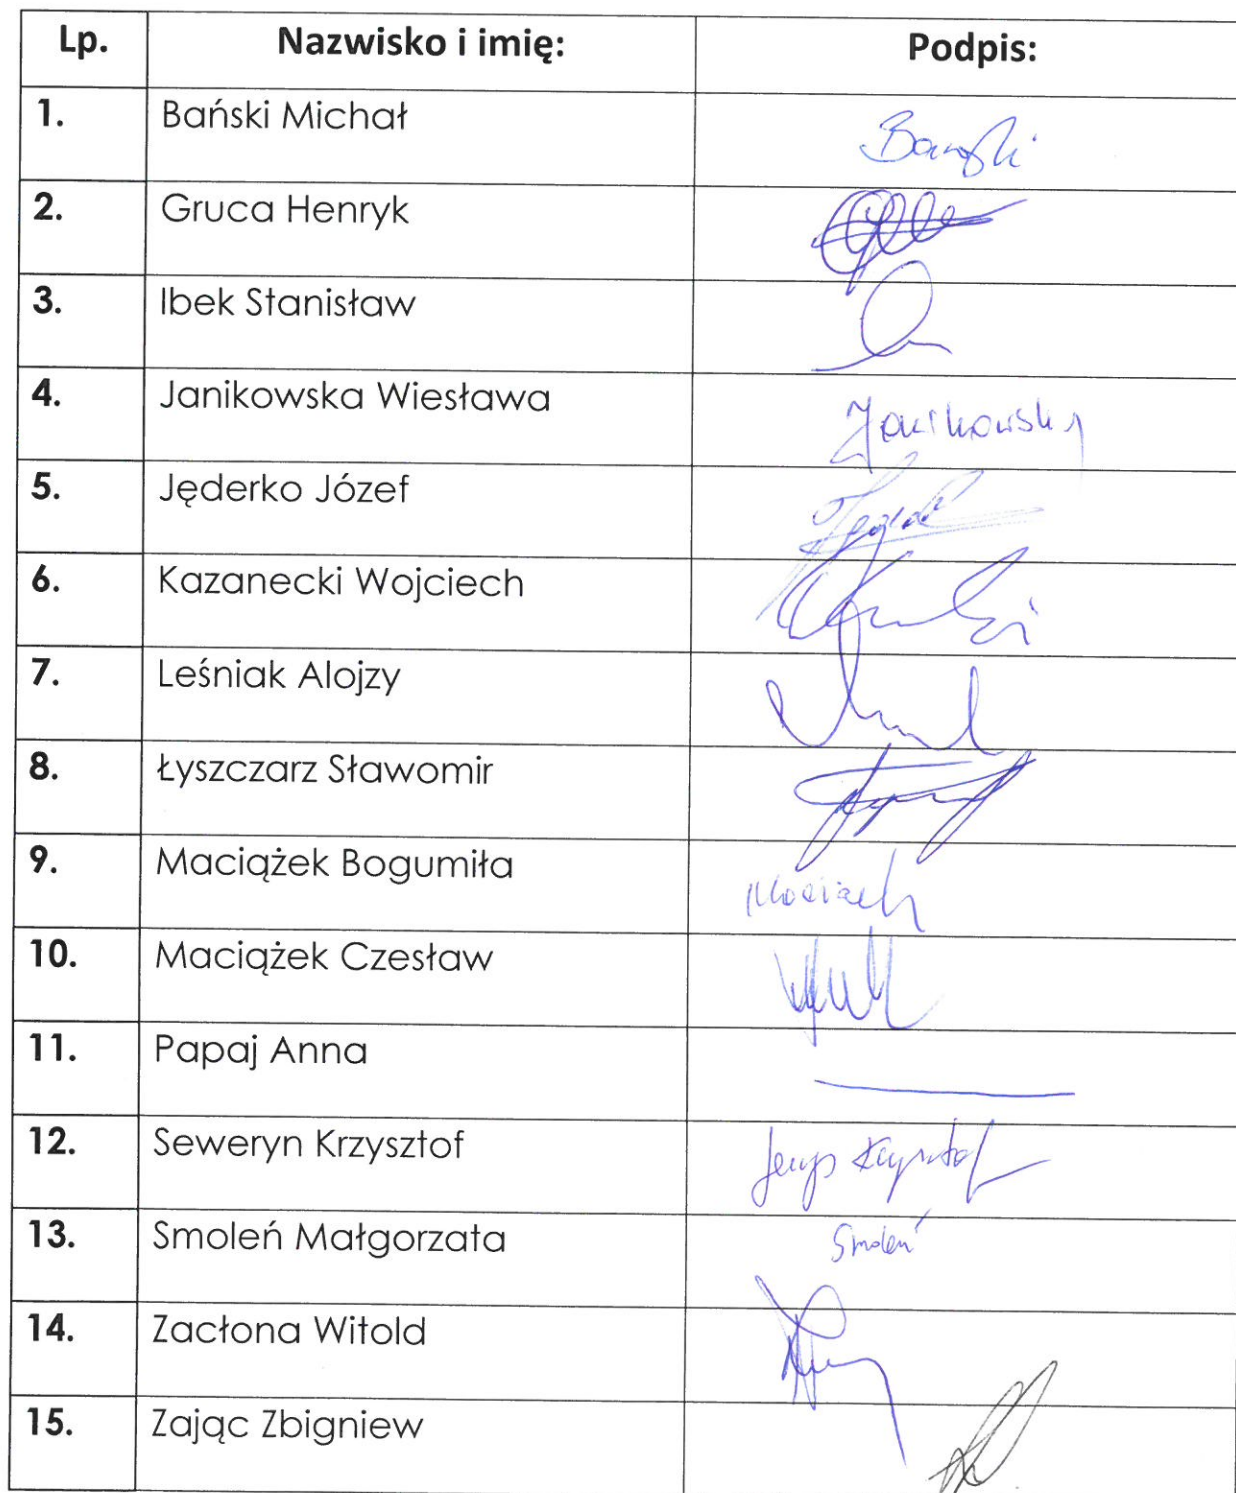 Lp. Nazwisko i imię: Podpis:
1. Bański Michał Bański
2. Gruca Henryk
3. Ibek Stanisław
4. Janikowska Wiesława Janikowska
5. Jęderko Józef
6. Kazanecki Wojciech
7. Leśniak Alojzy
8. Łyszczarz Sławomir
9. Maciążek Bogumiła
10. Maciążek Czesław
11. Papaj Anna
12. Seweryn Krzysztof Krzysztof
13. Smoleń Małgorzata Smoleń
14. Zacłona Witold
15. Zając Zbigniew